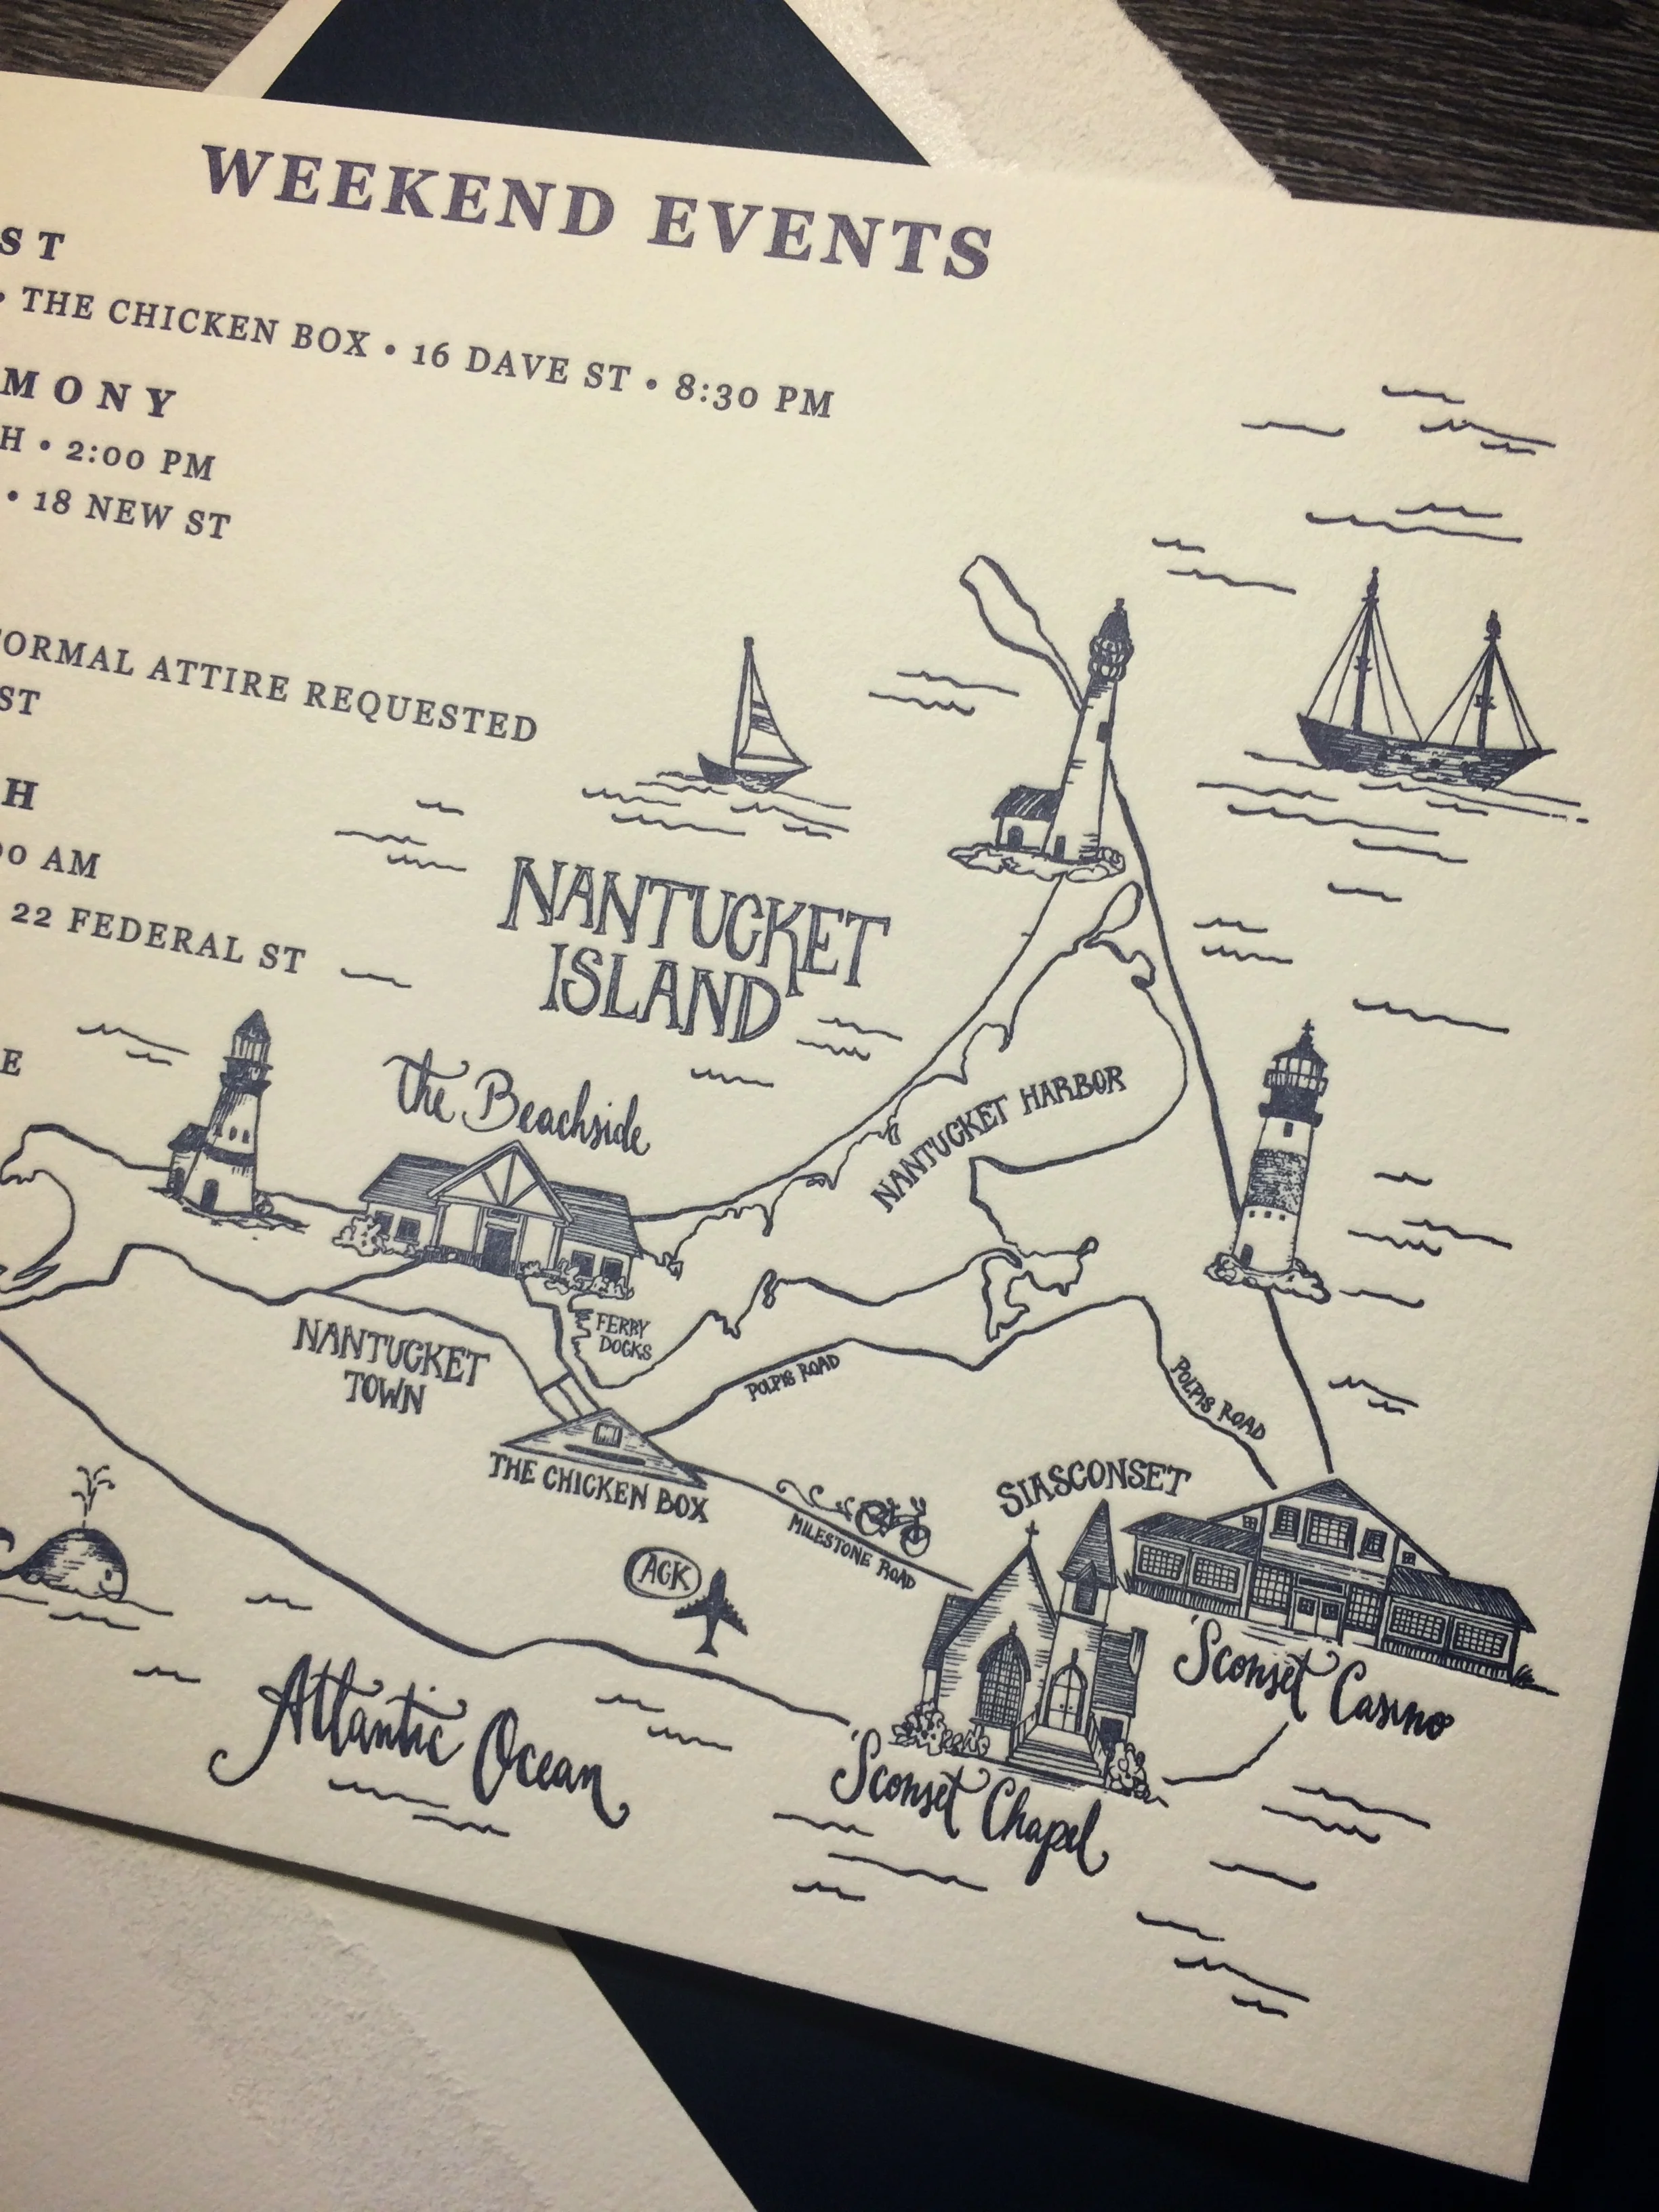 WEEKEND EVENTS
ST
• THE CHICKEN BOX • 16 DAVE ST • 8:30 PM
MONY
H • 2:00 PM
• 18 NEW ST
FORMAL ATTIRE REQUESTED
ST
H
00 AM
22 FEDERAL ST
E
NANTUCKET
ISLAND
the Beachside
NANTUCKET HARBOR
FERRY
DOCKS
NANTUCKET
TOWN
POLPIS ROAD
POLPIS ROAD
THE CHICKEN BOX
MILESTONE ROAD
SIASCONSET
ACK
'Sconset Casino
'Sconset Chapel
Atlantic Ocean